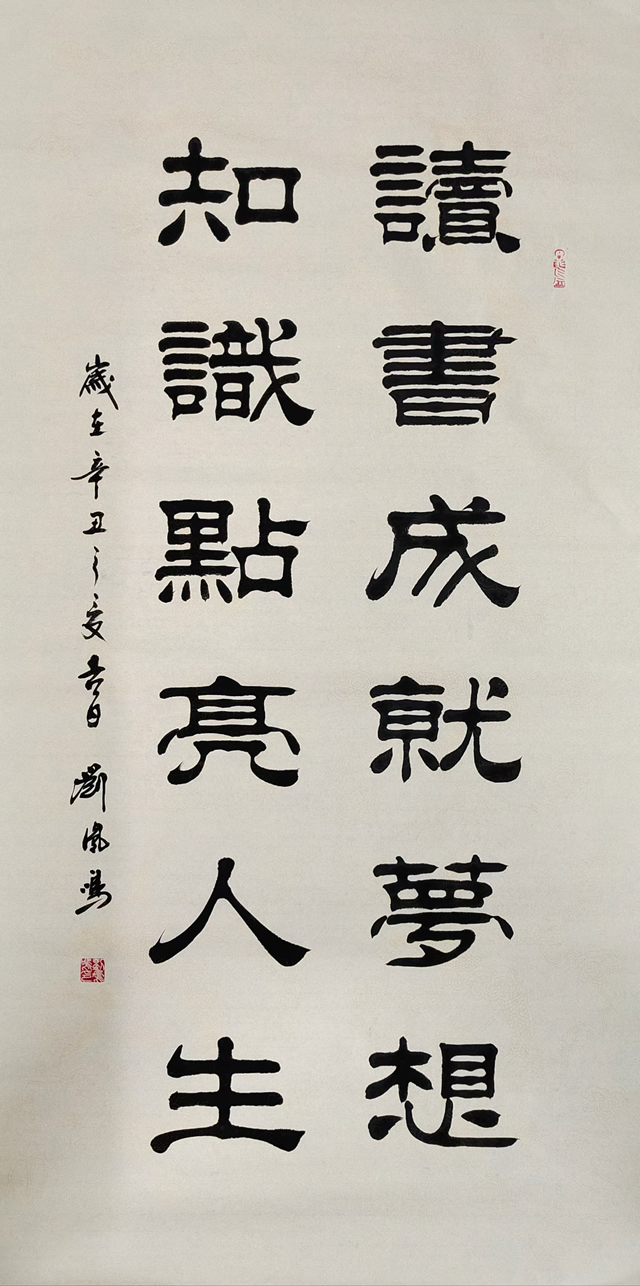 讀書成就夢想
知識點亮人生
歲在辛丑之夏吉日 劉鳳鳴